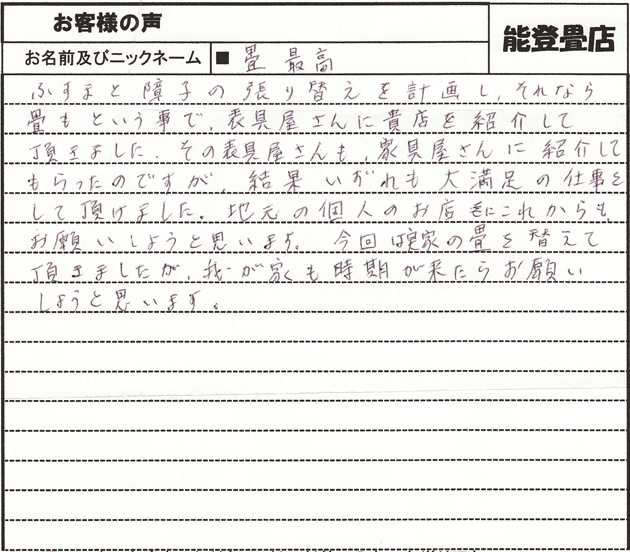 お客様の声
能登畳店
お名前及びニックネーム ■ 畳 最高
ふすまと障子の張り替えを計画し、それなら
畳もという事で 表具屋さんに貴店を紹介して
頂きました。その表具屋さんも、家具屋さんに紹介して
もらったのですが 結果いずれも大満足の仕事を
して頂けました。地元の個人のお店にこれからも、
お願いしようと思います。 今回は実家の畳を替えて
頂きましたが、我が家も時期が来たらお願い
しようと思います。